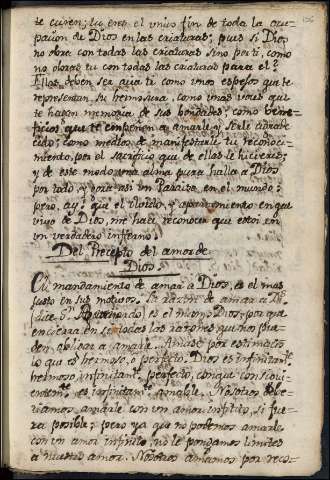 te curen; tu eres el unico fin de toda la ocu-
pacion de Dios en las criaturas; pues si Dios
no obra con todas las criaturas sino por ti, como
no obras tu con todas las criaturas para el?
Ellas deben ser aqui ti como unos espejos que te
representan su hermosura, como unas voces que
te hagan memoria de sus bondades; como bene-
ficios que te empeñen a amarle, y serle
cido; como medios de manifestarle tu reconoci-
miento, por el sacrificio que de ellas le hicieres;
y de este modo una alma pura halla a Dios
por todo, y goza asi un Paraiso en el mundo;
pero, ay! que el olvido, y apartamiento en que
vivo de Dios, me hace reconocer que estoi en
un verdadero infierno.
Del Precepto del amor de
Dios
El mandamiento de amar a Dios, es el mas
justo en sus motivos. La razon de amar a Ds.
dice Sn. Bernardo, es el mismo Dios; por que
encierra en si todas las razones que nos pue-
den obligar a amarle. Amase por estimacion
lo que es hermoso, o perfecto; Dios es infinitamte.
hermoso, infinitamte. perfecto, con que consigui-
entemte. es infinitamte. amable. Nosotros debe-
riamos amarle con un amor infinito, si fue-
ra posible; pero ya que no podemos amarle
con un amor infinito, no le pongamos limites
a nuestro amor. Nosotros amamos por reco-